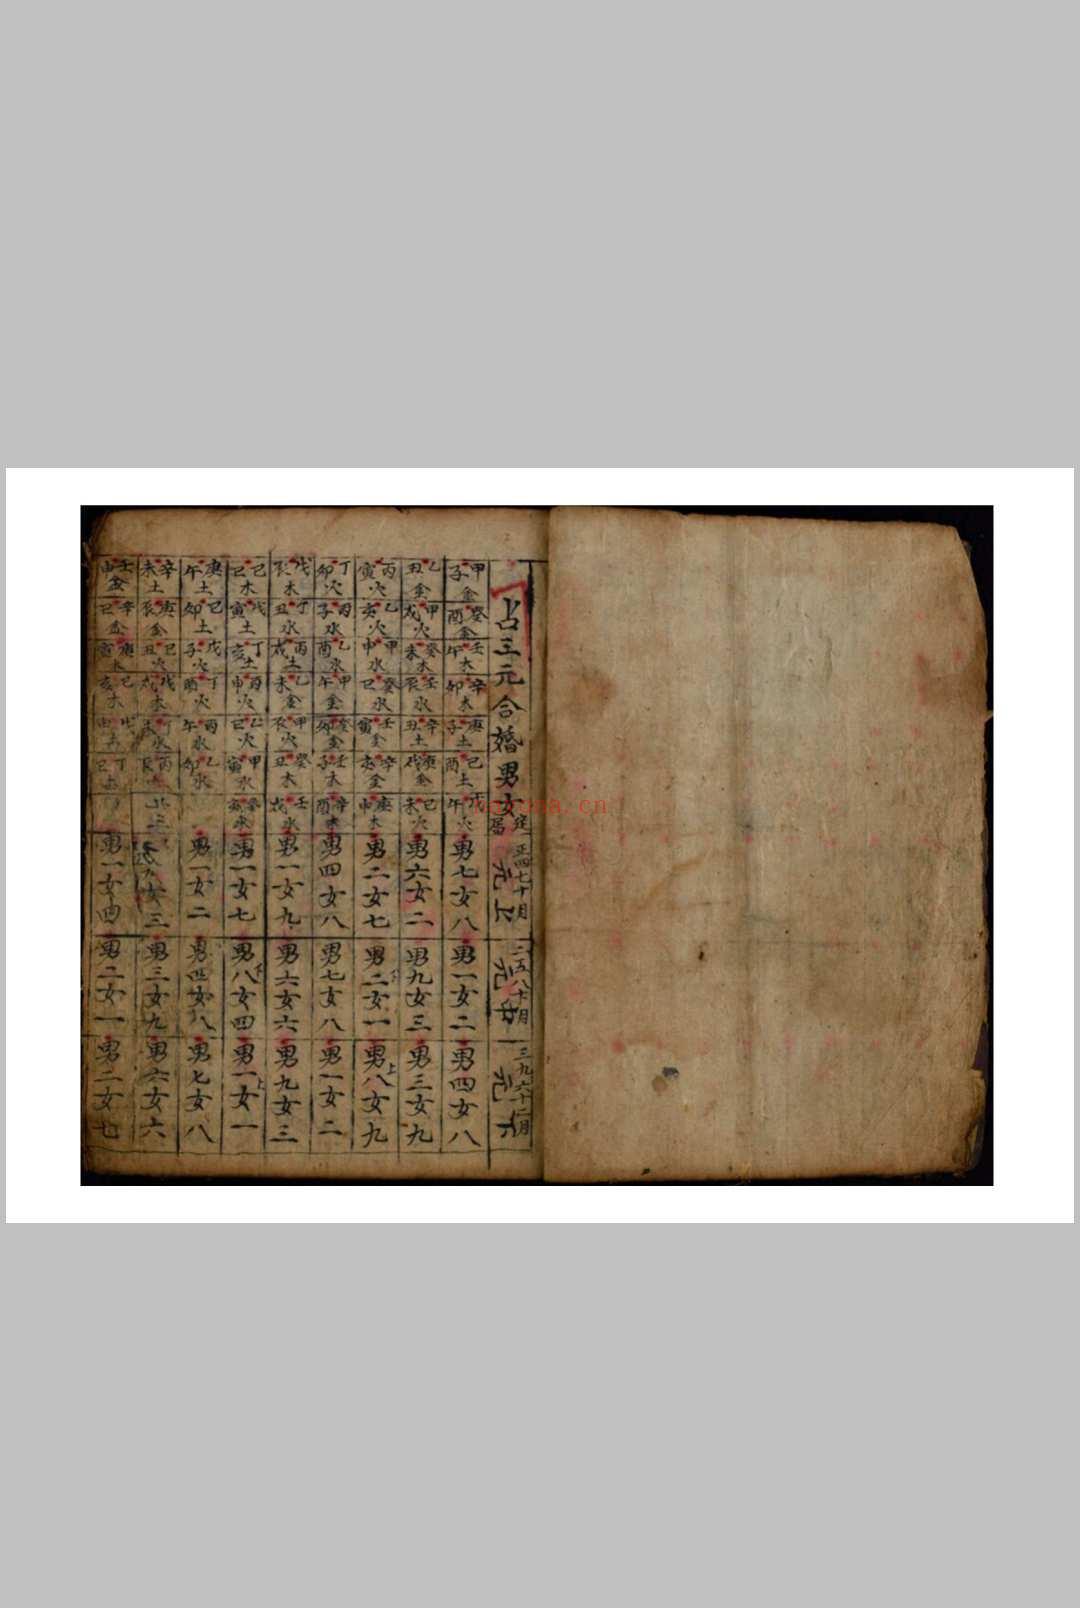 占三元合婚男女定局 正四七十月 上元 二五八十月 中元 三九六十二月 下元
甲子金 癸酉金 壬午木 辛卯木 庚子土 己酉土 戊午火 男七女八 男一女二 男四女八
乙丑金 甲戌火 癸未木 壬辰水 辛丑土 庚戌金 己未火 男六女二 男九女三 男三女九
丙寅火 乙亥火 甲申水 癸巳水 壬寅金 辛亥金 庚申木 男二女七 男二下女一 男八上女九
丁卯火 丙子水 乙酉水 甲午金 癸卯金 壬子木 辛酉木 男四女八 男七女八 男一女二
戊辰木 丁丑水 丙戌土 乙未金 甲辰火 癸丑木 壬戌水 男一女九 男六女六 男九女三
己巳木 戊寅土 丁亥土 丙申火 乙巳火 甲寅水 癸亥水 男一女七 男八下女四 男一上女一
庚午土 己卯土 戊子火 丁酉火 丙午水 乙卯水 男一女二 男四女八 男七女八
辛未土 庚辰金 己丑火 戊戌木 丁未水 丙辰 女三 男三女九 男六女六
壬申金 辛巳金 庚寅木 己亥木 戊申土 丁巳土 男一女四 男二女一 男二女七